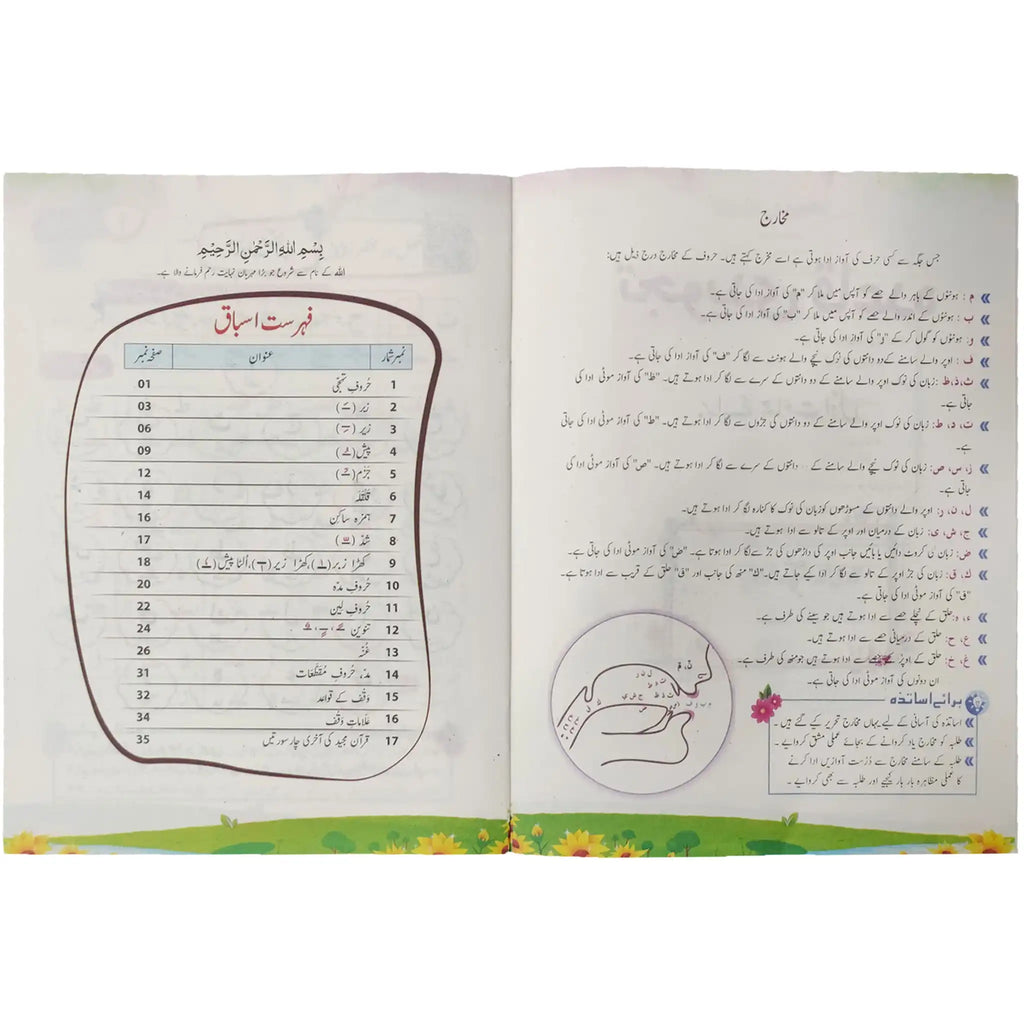 بِسْمِ اللهِ الرَّحْمٰنِ الرَّحِيْمِ
اللہ کے نام سے شروع جو بڑا مہربان نہایت رحم فرمانے والا ہے۔
فہرست اسباق
نمبر شمار عنوان صفحہ نمبر
1 حُروفِ تہجّی 01
2 زَبَر (ـَ) 03
3 زیر (ـِ) 06
4 پیش (ـُ) 09
5 جَزْم (ـْ) 12
6 قَلْقَلَہ 14
7 ہمزہ ساکِن 16
8 شَدّ (ـّ) 17
9 کھڑا زبر (ـٰ)، کھڑا زیر (ـٖ)، اُلٹا پیش (ـٗ) 18
10 حُروفِ مدّہ 20
11 حُروفِ لین 22
12 تنوین ـً، ـٍ، ـٌ 24
13 غُنّہ 26
14 مدّ، حُروفِ مُقطّعات 31
15 وَقْف کے قواعد 32
16 عَلاماتِ وَقْف 34
17 قرآن مجید کی آخری چار سورتیں 35
مخارج
جس جگہ سے کسی حرف کی آواز ادا ہوتی ہے اسے مخرج کہتے ہیں۔ حروف کے مخارج درج ذیل ہیں:
م : ہونٹوں کے باہر والے حصے کو آپس میں ملا کر "م" کی آواز ادا کی جاتی ہے۔
ب : ہونٹوں کے اندر والے حصے کو آپس میں ملا کر "ب" کی آواز ادا کی جاتی ہے۔
و: ہونٹوں کو گول کر کے "و" کی آواز ادا کی جاتی ہے۔
ف : اوپر والے سامنے کے دو دانتوں کی نوک نیچے والے ہونٹ سے لگا کر "ف" کی آواز ادا کی جاتی ہے۔
ث، ذ، ظ :زبان کی نوک اوپر والے سامنے کے دو دانتوں کے سرے سے لگا کر ادا ہوتے ہیں۔ "ظ" کی آواز موٹی ادا کی
جاتی ہے۔
ت، د، ط: زبان کی نوک اوپر والے سامنے کے دو دانتوں کی جڑوں سے لگا کر ادا ہوتے ہیں۔ "ط" کی آواز موٹی ادا کی جاتی
ہے۔
ز، س، ص: زبان کی نوک نیچے والے سامنے کے دانتوں کے سرے سے لگا کر ادا ہوتے ہیں۔ "ص" کی آواز موٹی ادا کی
جاتی ہے۔
ل، ن، ر: اوپر والے دانتوں کے مسوڑھوں کو زبان کی نوک کا کنارہ لگا کر ادا ہوتے ہیں۔
ج، ش، ی: زبان کے درمیان اور اوپر کے تالو سے ادا ہوتے ہیں۔
ض: زبان کی کروٹ دائیں یا بائیں جانب اوپر کی داڑھوں کی جڑ سے لگا کر ادا ہوتا ہے۔ "ض" کی آواز موٹی ادا کی جاتی ہے۔
ك، ق: زبان کی جڑ اوپر کے تالو سے لگا کر ادا کیے جاتے ہیں۔ "ك" منھ کی جانب اور "ق" حلق کے قریب سے ادا ہوتا ہے۔
"ق" کی آواز موٹی ادا کی جاتی ہے۔
ء، ہ: حلق کے نچلے حصے سے ادا ہوتے ہیں جو سینے کی طرف ہے۔
ع، ح: حلق کے درمیانی حصے سے ادا ہوتے ہیں۔
غ، خ: حلق کے اوپر کے حصے سے ادا ہوتے ہیں جو منھ کی طرف ہے۔
ان دونوں کی آواز موٹی ادا کی جاتی ہے۔
برائے اساتذہ
اساتذہ کی آسانی کے لیے یہاں مخارج تحریر کیے گئے ہیں۔
طلبہ کو مخارج یاد کروانے کے بجائے عملی مشق کروایے۔
طلبہ کے سامنے مخارج سے دُرُست آوازیں ادا کرنے
کا عملی مظاہرہ بار بار کیجیے اور طلبہ سے بھی کروایے۔